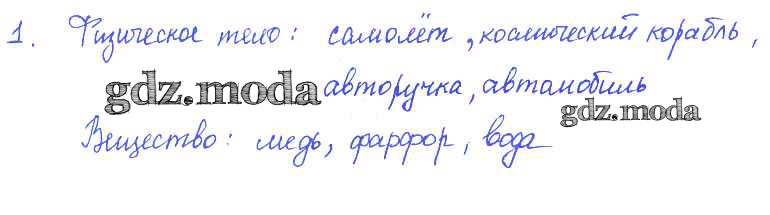 1. Физическое тело: самолёт, космический корабль,
gdz.moda авторучка, автомобиль
gdz.moda
Вещество: медь, фарфор, вода